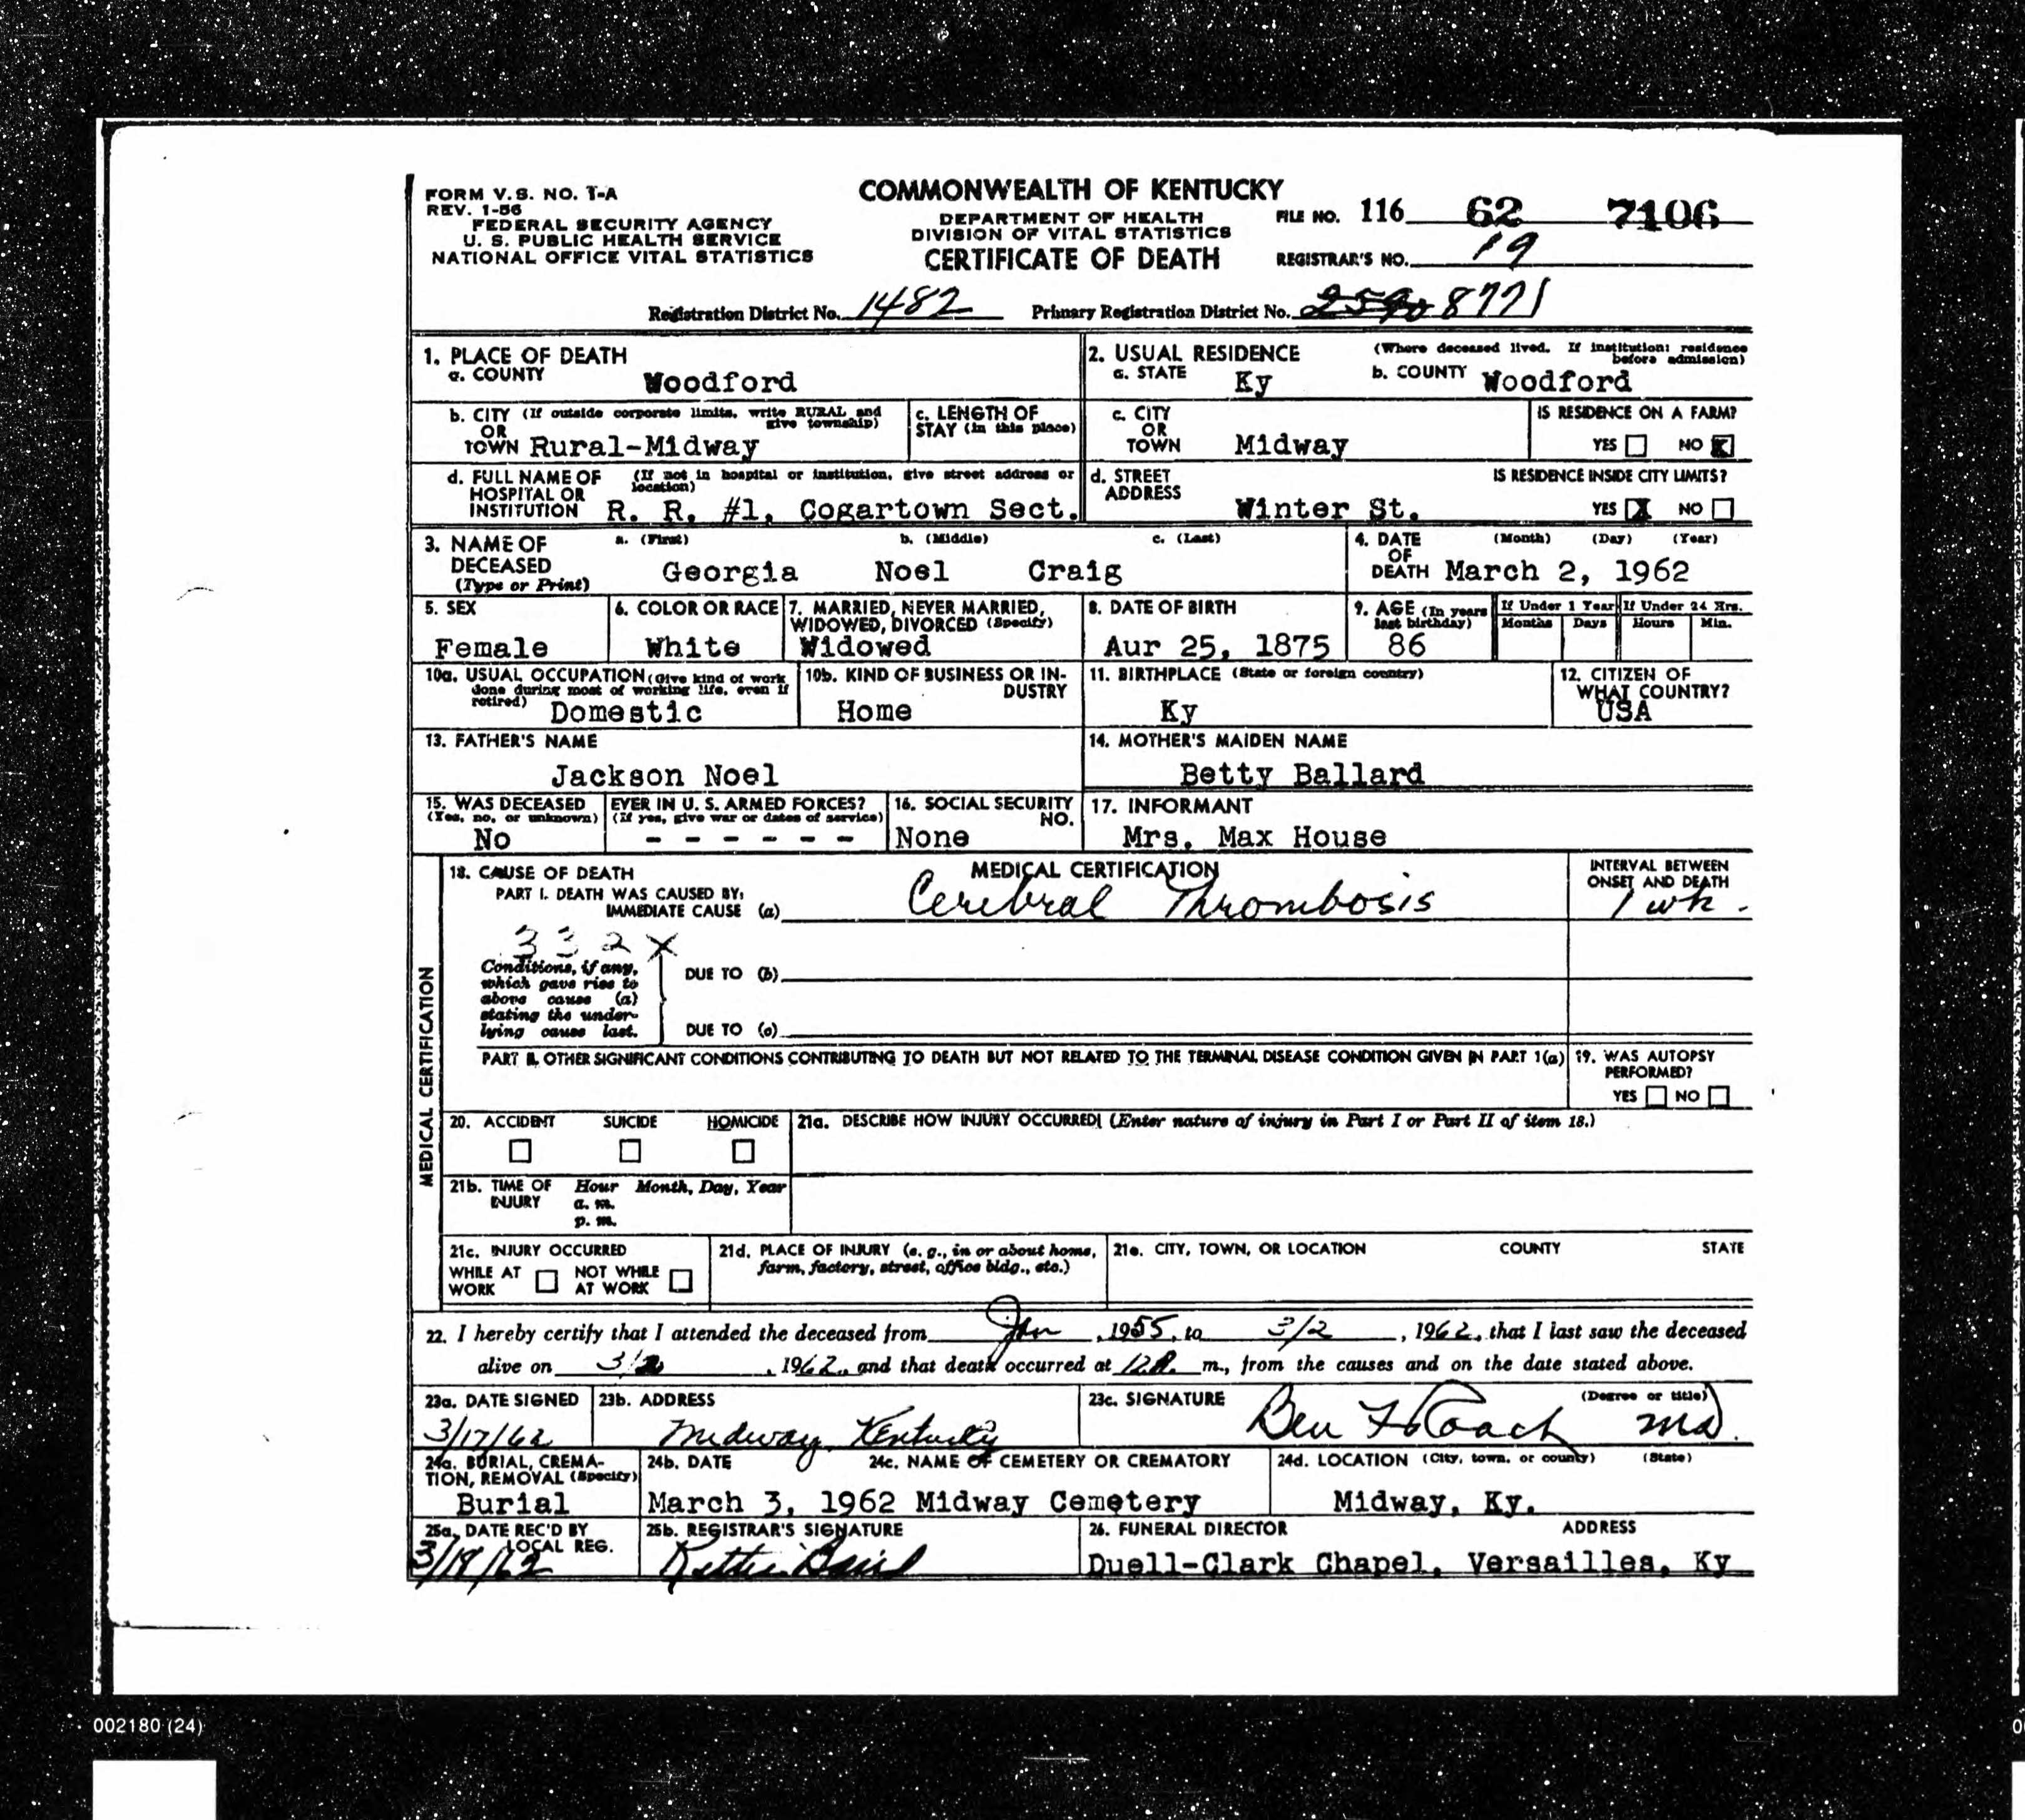 FORM V.S. NO. 1-A
REV. 1-56
FEDERAL SECURITY AGENCY
U. S. PUBLIC HEALTH SERVICE
NATIONAL OFFICE VITAL STATISTICS
COMMONWEALTH OF KENTUCKY
DEPARTMENT OF HEALTH
DIVISION OF VITAL STATISTICS
CERTIFICATE OF DEATH
FILE NO. 116 62 7106
REGISTRAR'S NO. 19
Registration District No. 1482 Primary Registration District No. 8771
1. PLACE OF DEATH
a. COUNTY Woodford
2. USUAL RESIDENCE (Where deceased lived. If institution: residence before admission)
a. STATE Ky b. COUNTY Woodford
b. CITY (If outside corporate limits, write RURAL and give township)
OR TOWN Rural-Midway
c. LENGTH OF STAY (in this place)
c. CITY OR TOWN Midway
IS RESIDENCE ON A FARM?
YES NO X
d. FULL NAME OF HOSPITAL OR INSTITUTION (If not in hospital or institution, give street address or location)
R. R. #1, Cogartown Sect.
d. STREET ADDRESS Winter St.
IS RESIDENCE INSIDE CITY LIMITS?
YES X NO
3. NAME OF DECEASED (Type or Print)
a. (First) b. (Middle) c. (Last)
Georgia Noel Craig
4. DATE OF DEATH (Month) (Day) (Year)
March 2, 1962
5. SEX
Female
6. COLOR OR RACE
White
7. MARRIED, NEVER MARRIED, WIDOWED, DIVORCED (Specify)
Widowed
8. DATE OF BIRTH
Aur 25, 1875
9. AGE (In years last birthday)
86
If Under 1 Year If Under 24 Hrs.
Months Days Hours Min.
10a. USUAL OCCUPATION (Give kind of work done during most of working life, even if retired)
Domestic
10b. KIND OF BUSINESS OR INDUSTRY
Home
11. BIRTHPLACE (State or foreign country)
Ky
12. CITIZEN OF WHAT COUNTRY?
USA
13. FATHER'S NAME
Jackson Noel
14. MOTHER'S MAIDEN NAME
Betty Ballard
15. WAS DECEASED EVER IN U. S. ARMED FORCES?
(Yes, no, or unknown) (If yes, give war or dates of service)
No - - - - - -
16. SOCIAL SECURITY NO.
None
17. INFORMANT
Mrs. Max House
MEDICAL CERTIFICATION
18. CAUSE OF DEATH MEDICAL CERTIFICATION
PART I. DEATH WAS CAUSED BY:
IMMEDIATE CAUSE (a) Cerebral Thrombosis
INTERVAL BETWEEN ONSET AND DEATH
1 wk.
332X
Conditions, if any, which gave rise to above cause (a) stating the underlying cause last.
DUE TO (b)
DUE TO (c)
PART II. OTHER SIGNIFICANT CONDITIONS CONTRIBUTING TO DEATH BUT NOT RELATED TO THE TERMINAL DISEASE CONDITION GIVEN IN PART 1(a)
19. WAS AUTOPSY PERFORMED?
YES NO
20. ACCIDENT SUICIDE HOMICIDE
21a. DESCRIBE HOW INJURY OCCURRED (Enter nature of injury in Part I or Part II of item 18.)
21b. TIME OF INJURY Hour Month, Day, Year
a. m.
p. m.
21c. INJURY OCCURRED
WHILE AT WORK NOT WHILE AT WORK
21d. PLACE OF INJURY (e. g., in or about home, farm, factory, street, office bldg., etc.)
21e. CITY, TOWN, OR LOCATION COUNTY STATE
22. I hereby certify that I attended the deceased from Jan, 1955, to 3/2, 1962, that I last saw the deceased
alive on 3/2, 1962, and that death occurred at m., from the causes and on the date stated above.
23a. DATE SIGNED
3/17/62
23b. ADDRESS
Midway, Kentucky
23c. SIGNATURE (Degree or title)
Ben F Roach MD.
24a. BURIAL, CREMATION, REMOVAL (Specify)
Burial
24b. DATE
March 3, 1962
24c. NAME OF CEMETERY OR CREMATORY
Midway Cemetery
24d. LOCATION (City, town, or county) (State)
Midway, Ky.
25a. DATE REC'D BY LOCAL REG.
3/18/62
25b. REGISTRAR'S SIGNATURE
26. FUNERAL DIRECTOR ADDRESS
Duell-Clark Chapel, Versailles, Ky
002180 (24)